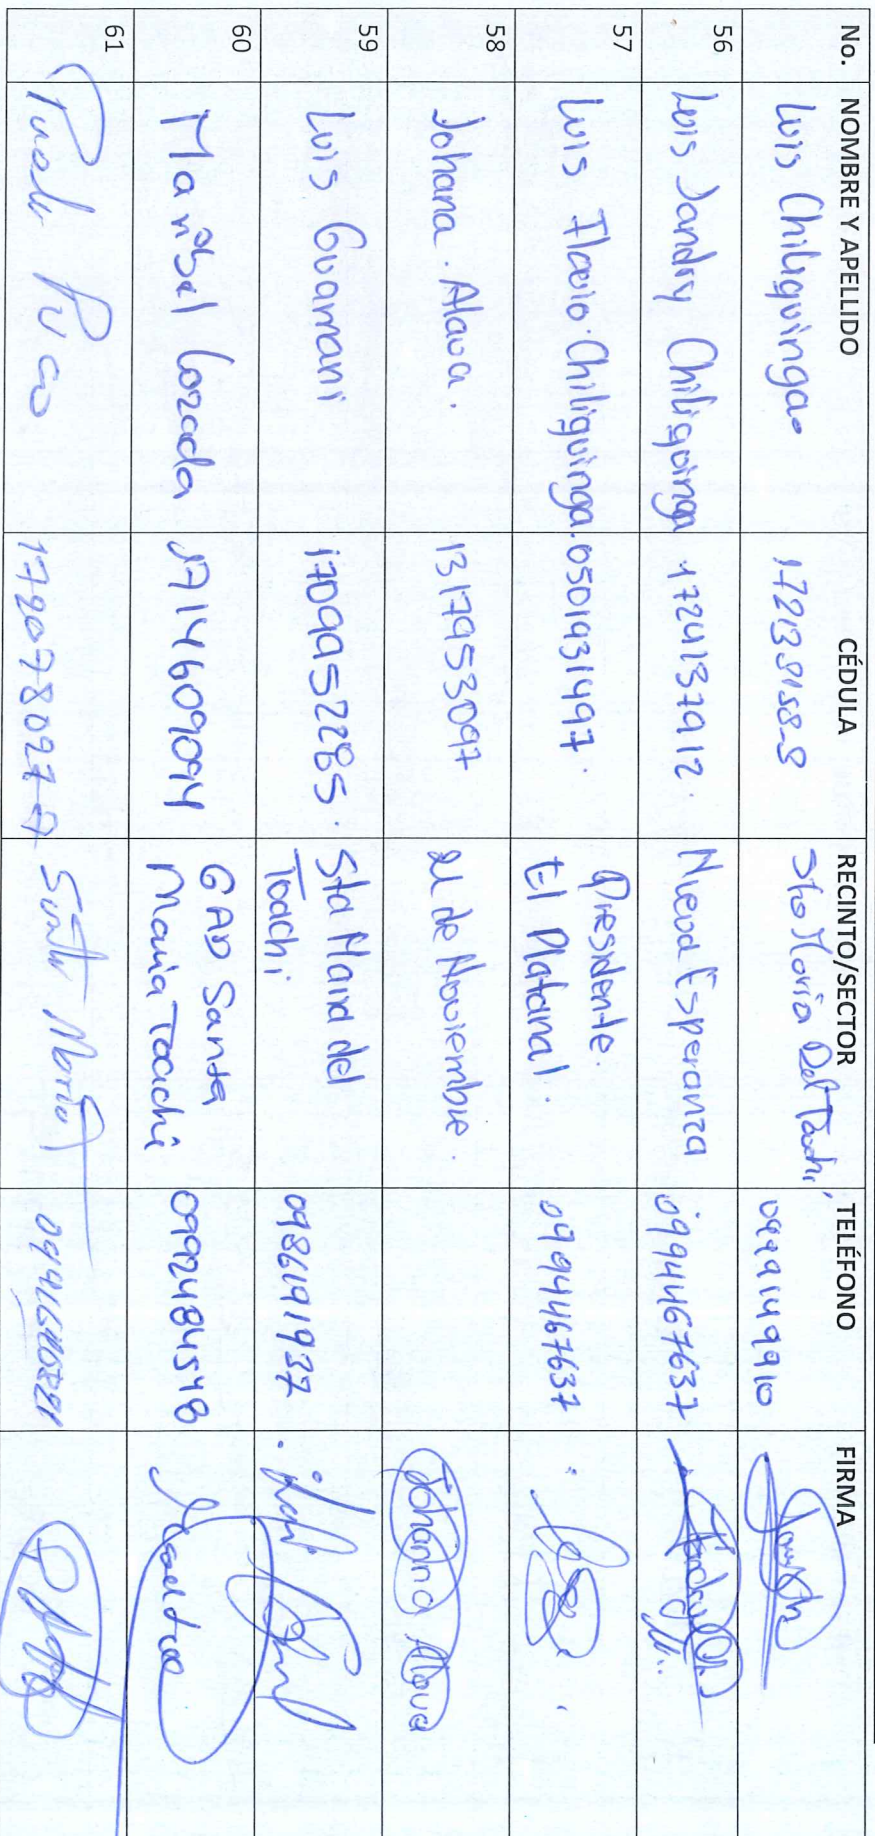 No. NOMBRE Y APELLIDO CÉDULA RECINTO/SECTOR TELÉFONO FIRMA
Luis Chiliquinga. 172138158-8 Sta María Del Toachi, 0991499910
56 Luis Sandry Chiliquinga 1724137912. Nueva Esperanza 0994467637
57 Luis Flavio Chiliquinga. 0501931497. Presidente.
El Platanal. 0994467637
58 Johana. Alava. 1317953097 21 de Noviembre. Johanna Alava
59 Luis Guamani 1709952285. Sta Maria del
Toachi 0986191937
60 Marisol Lozada 1714609094 GAD Santa
Maria Toachi 0992484548
61 172078027-7